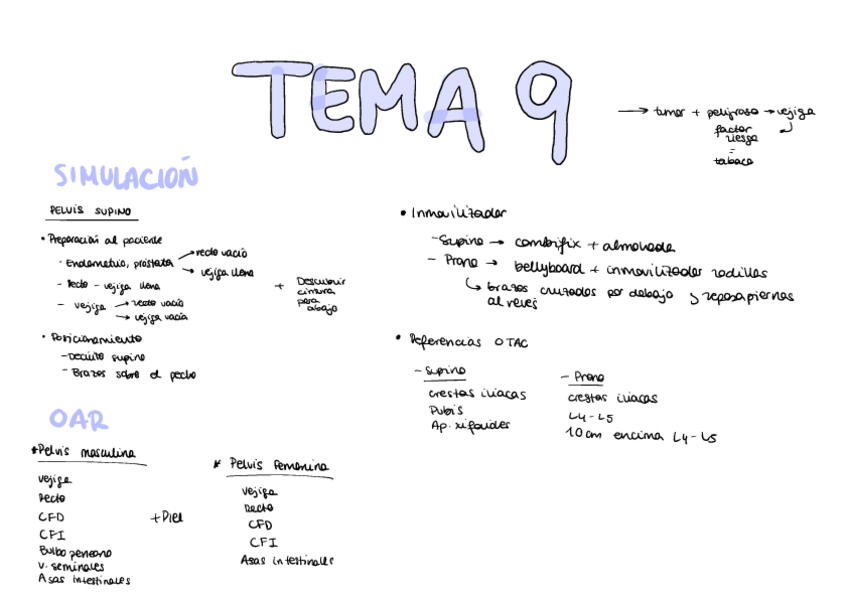 TEMA 9
→ tumor + peligroso → vejiga
factor
riesgo
=
tabaco
SIMULACIÓN
PELVIS SUPINO
• Preparación al paciente
- Endometrio, próstata → recto vacío
→ vejiga llena
- Recto - vejiga llena
- vejiga → recto vacío
→ vejiga vacía
+ Descubrir
cintura
para
abajo
• Posicionamiento
- Decúito supino
- Brazos sobre el pecho
• Inmovilizador
- Supino → combifix + almohada
- Prono → bellyboard + inmovilizador rodillas
↳ brazos cruzados por debajo y reposapiernas
al revés
• Referencias OTAC
- Supino
crestas iliacas
Pubis
Ap. xifoides
- Prono
crestas iliacas
L4-L5
10cm encima L4-L5
OAR
*Pelvis masculina
vejiga
Recto
CFD
CFI
Bulbo peneano
V. seminales
Asas intestinales
+ Piel
* Pelvis femenina
vejiga
Recto
CFD
CFI
Asas intestinales